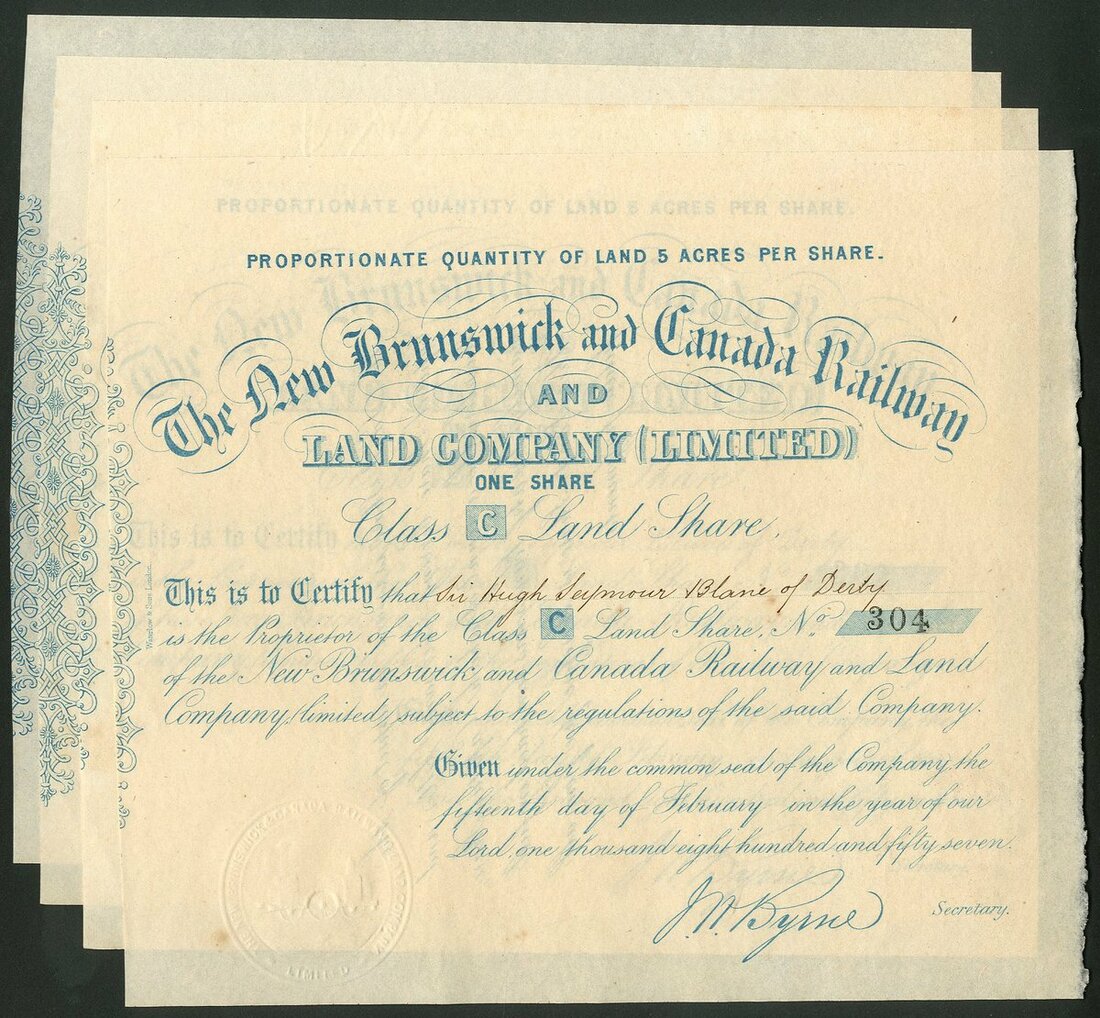 PROPORTIONATE QUANTITY OF LAND 5 ACRES PER SHARE.
PROPORTIONATE QUANTITY OF LAND 5 ACRES PER SHARE.
The New Brunswick and Canada Railway
AND
LAND COMPANY (LIMITED)
ONE SHARE
Class C Land Share.
This is to Certify
This is to Certify that Sir Hugh Seymour Blane of Derby
is the Proprietor of the Class C Land Share, No. 304
of the New Brunswick and Canada Railway and Land
Company, limited, subject to the regulations of the said Company.
Given under the common seal of the Company, the
fifteenth day of February in the year of our
Lord, one thousand eight hundred and fifty seven.
J. W. Byrne Secretary.
Waterlow & Sons, London.
LIMITED